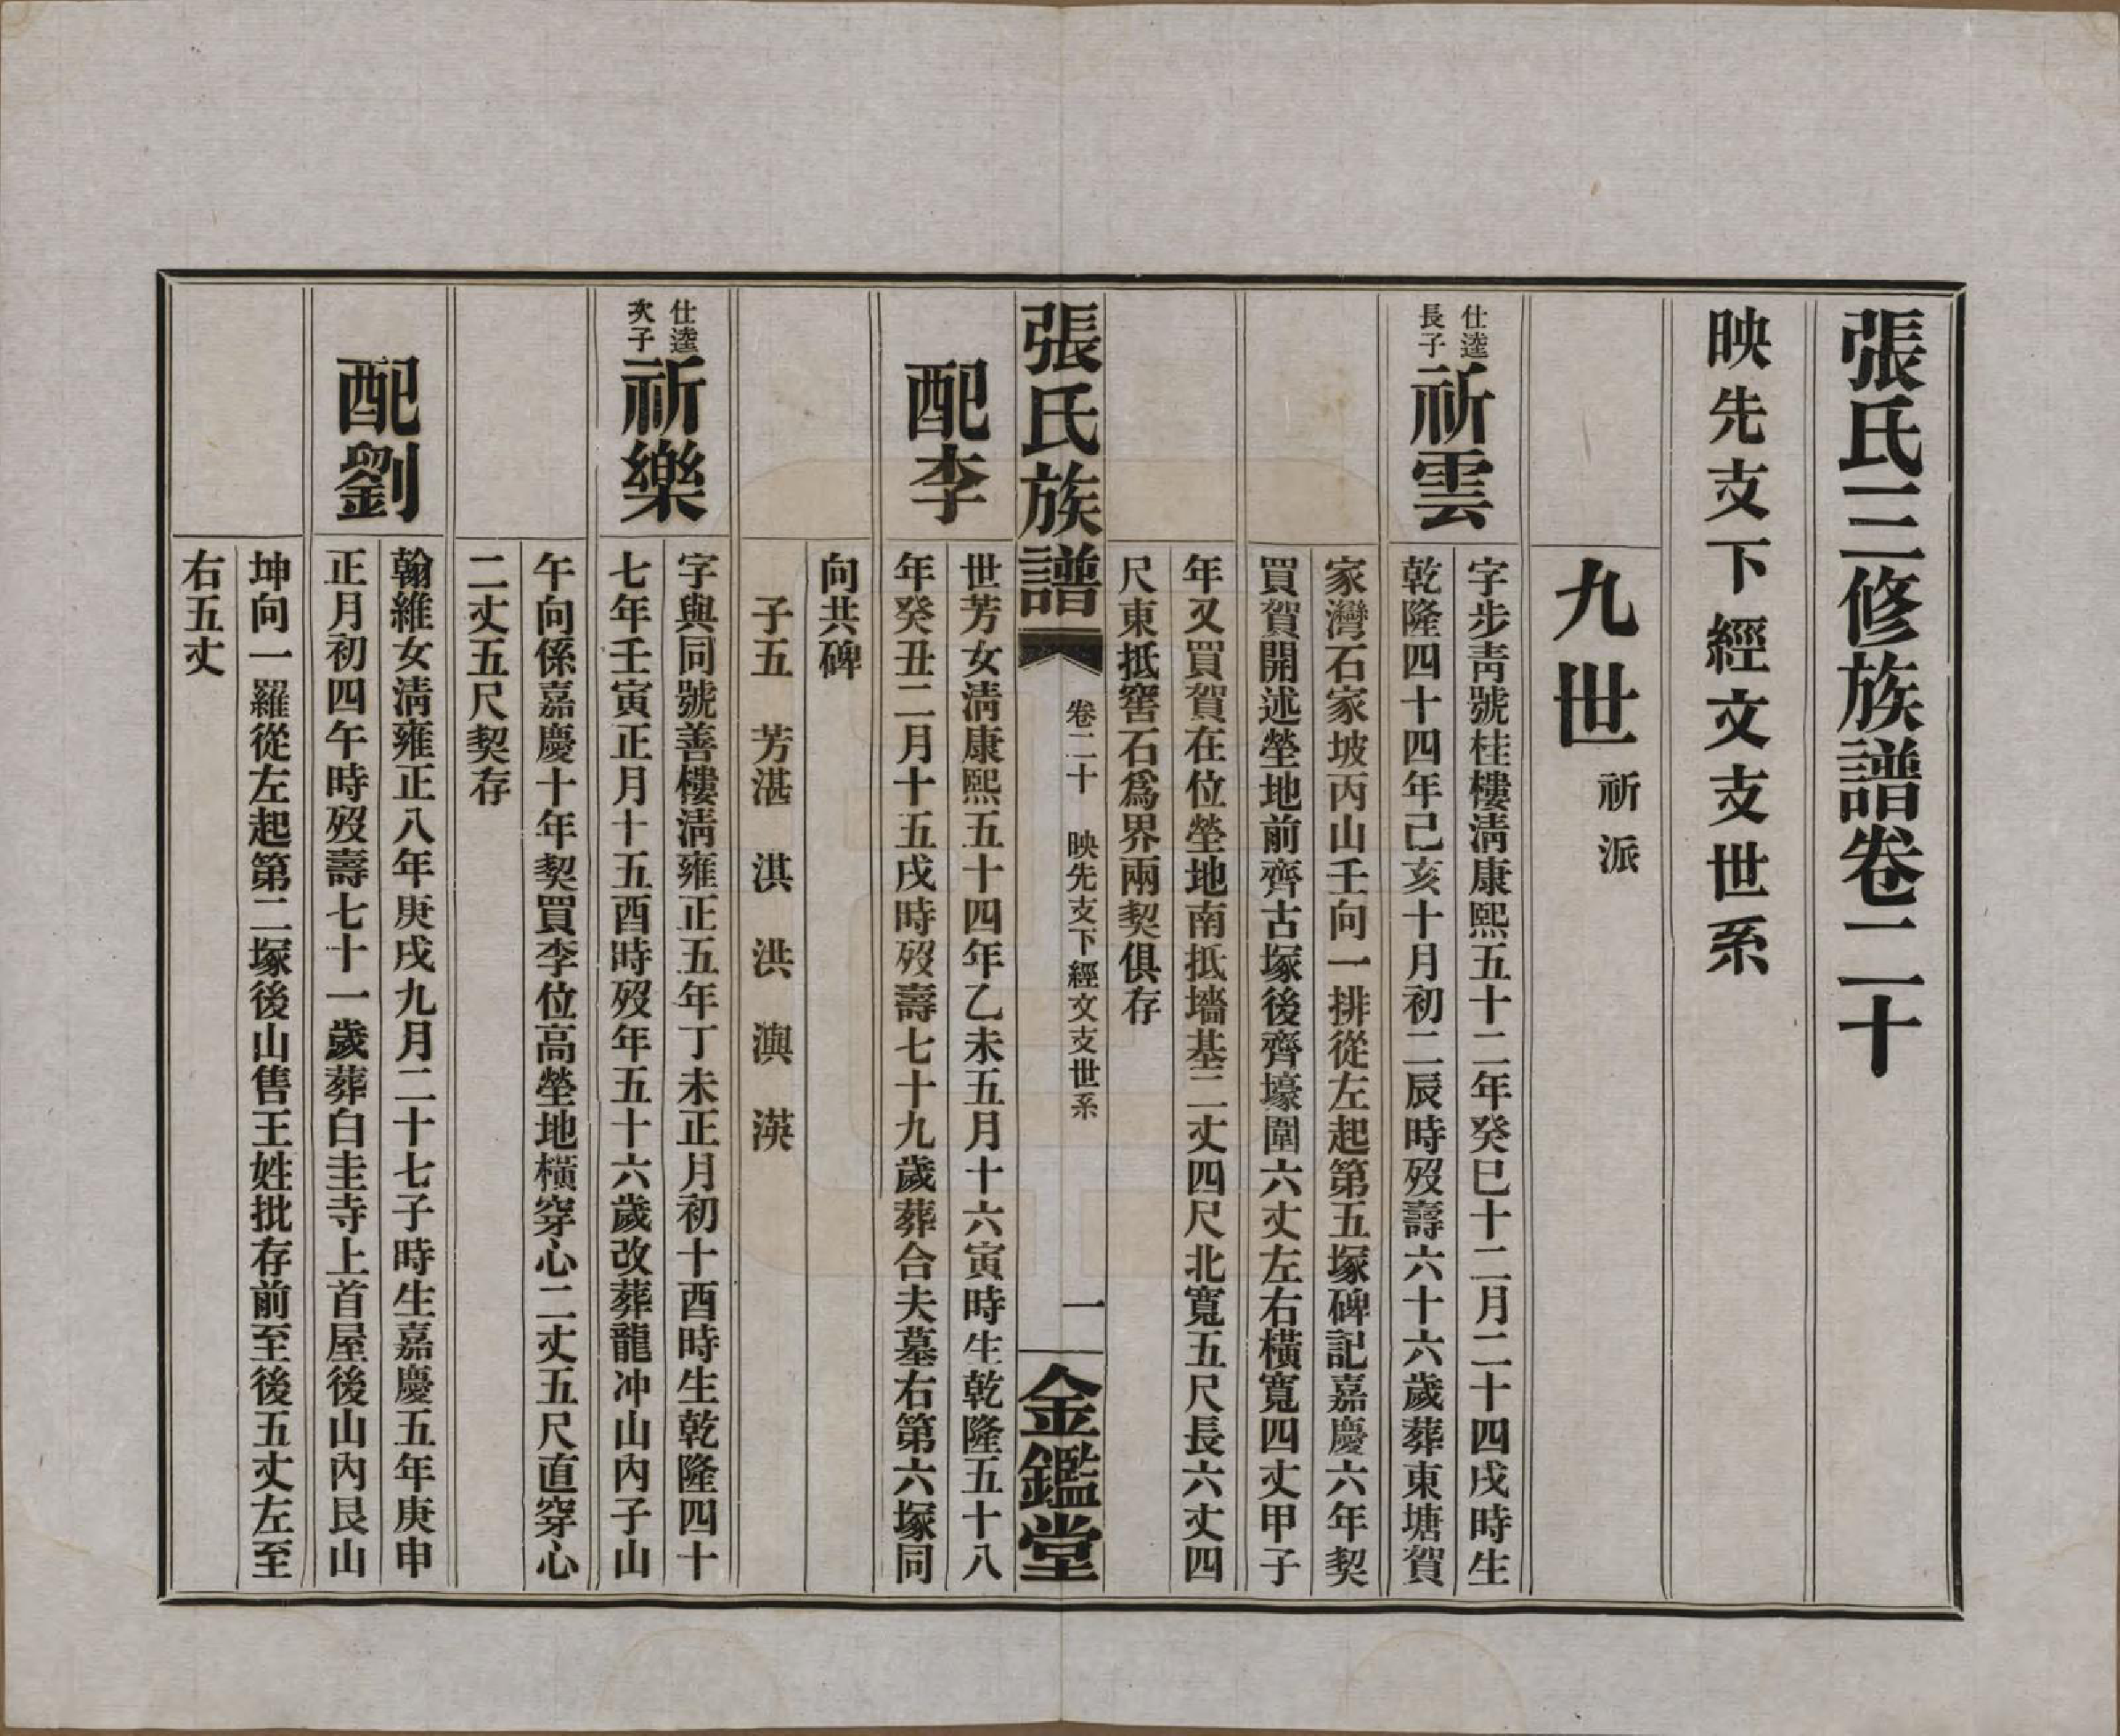 張氏三修族譜卷二十
映先支下經文支世系
九世祈派
仕逵長子
祈雲
字步靑號桂樓淸康熙五十二年癸巳十二月二十四戌時生
乾隆四十四年己亥十月初二辰時歿壽六十六歲葬東塘賀
家灣石家坡丙山壬向一排從左起第五塚碑記嘉慶六年契
買賀開述塋地前齊古塚後齊壕圍六丈左右橫寬四丈甲子
年又買賀在位塋地南抵墻基二丈四尺北寬五尺長六丈四
尺東抵窖石爲界兩契俱存
張氏族譜
卷二十 映先支下經文支世系
一
金鑑堂
配李
世芳女淸康熙五十四年乙未五月十六寅時生乾隆五十八
年癸丑二月十五戌時歿壽七十九歲葬合夫墓右第六塚同
向共碑
子五 芳湛 淇 洪 澳 渶
仕逵次子
祈樂
字與同號善樓淸雍正五年丁未正月初十酉時生乾隆四十
七年壬寅正月十五酉時歿年五十六歲改葬龍冲山內子山
午向係嘉慶十年契買李位高塋地橫穿心二丈五尺直穿心
二丈五尺契存
配劉
翰維女淸雍正八年庚戌九月二十七子時生嘉慶五年庚申
正月初四午時歿壽七十一歲葬白圭寺上首屋後山內艮山
坤向一羅從左起第二塚後山售王姓批存前至後五丈左至
右五丈